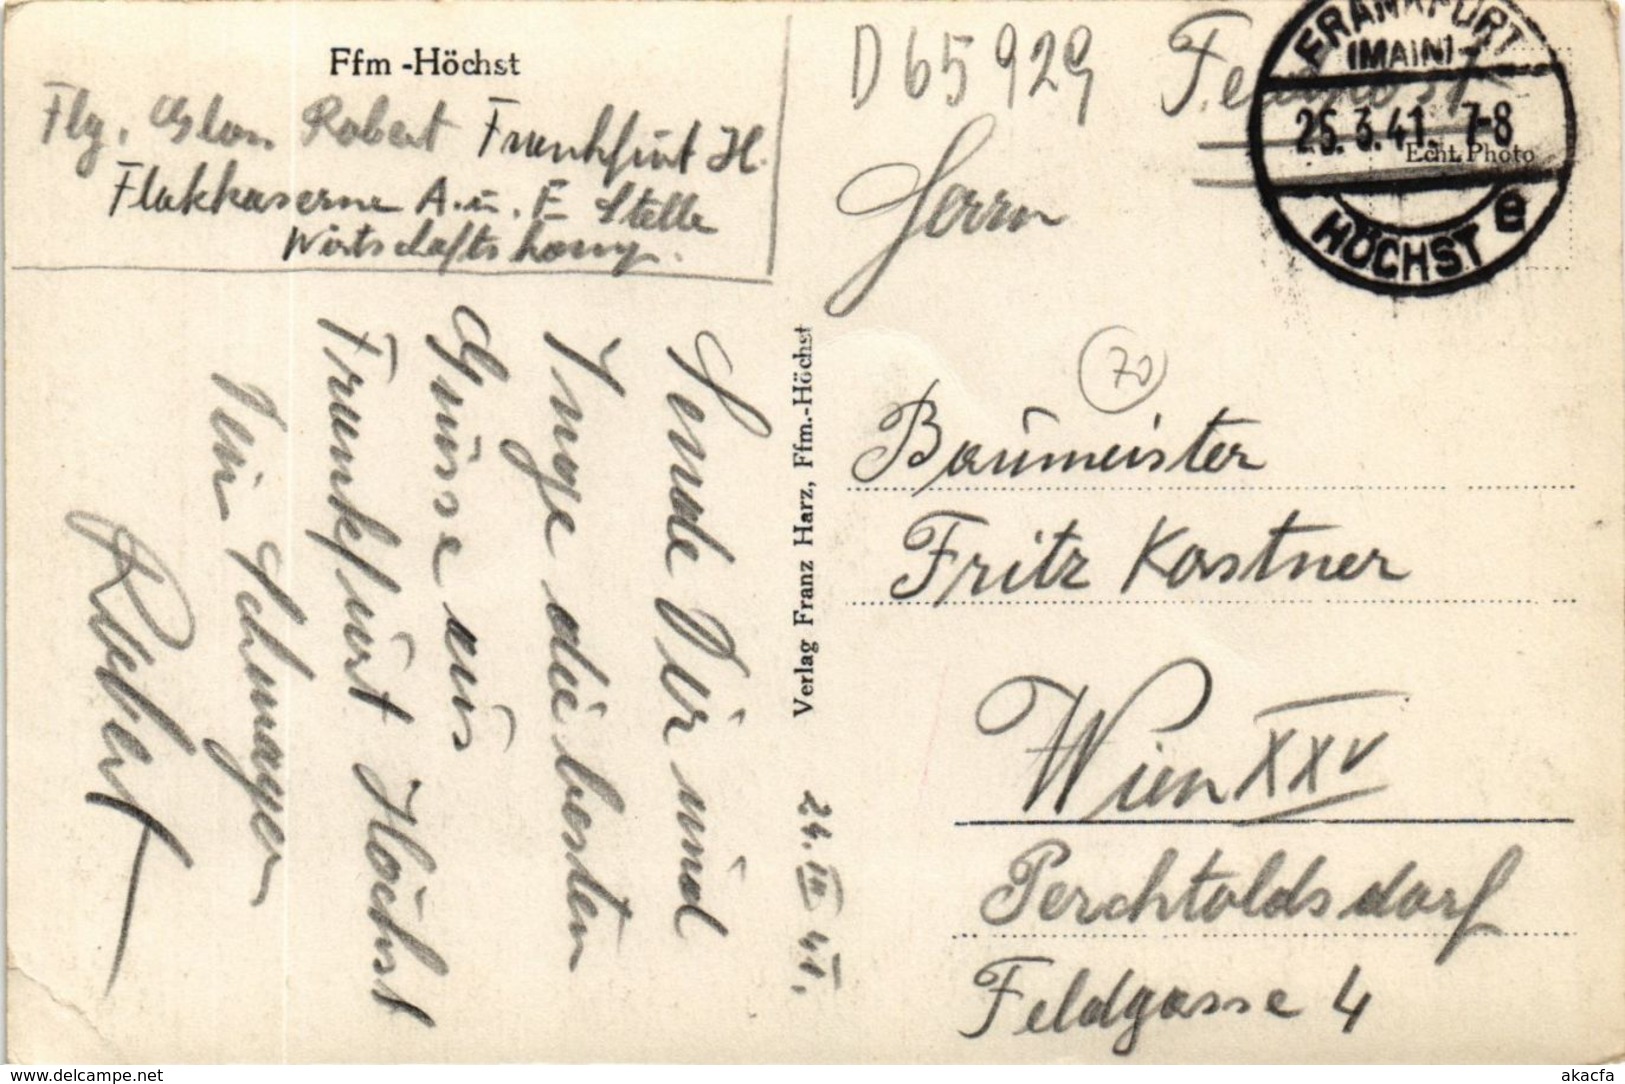 Ffm -Höchst
Flg. Robert Frankfurt H.
Flakkaserne A. u. E Stelle
Wirtschaftskomp.
Sende Dir und
Inge die besten
Grüsse aus
Frankfurt Höchst
Dein Schwager
Robert
Verlag Franz Harz, Ffm.-Höchst
24. III 41.
D 65929
Feldpost
FRANKFURT
(MAIN)
25.3.41. 7-8
HÖCHST e
Echt Photo
Herrn
70
Baumeister
Fritz Kastner
Wien XXV
Perchtoldsdorf
Feldgasse 4
www.delcampe.net
akacfa